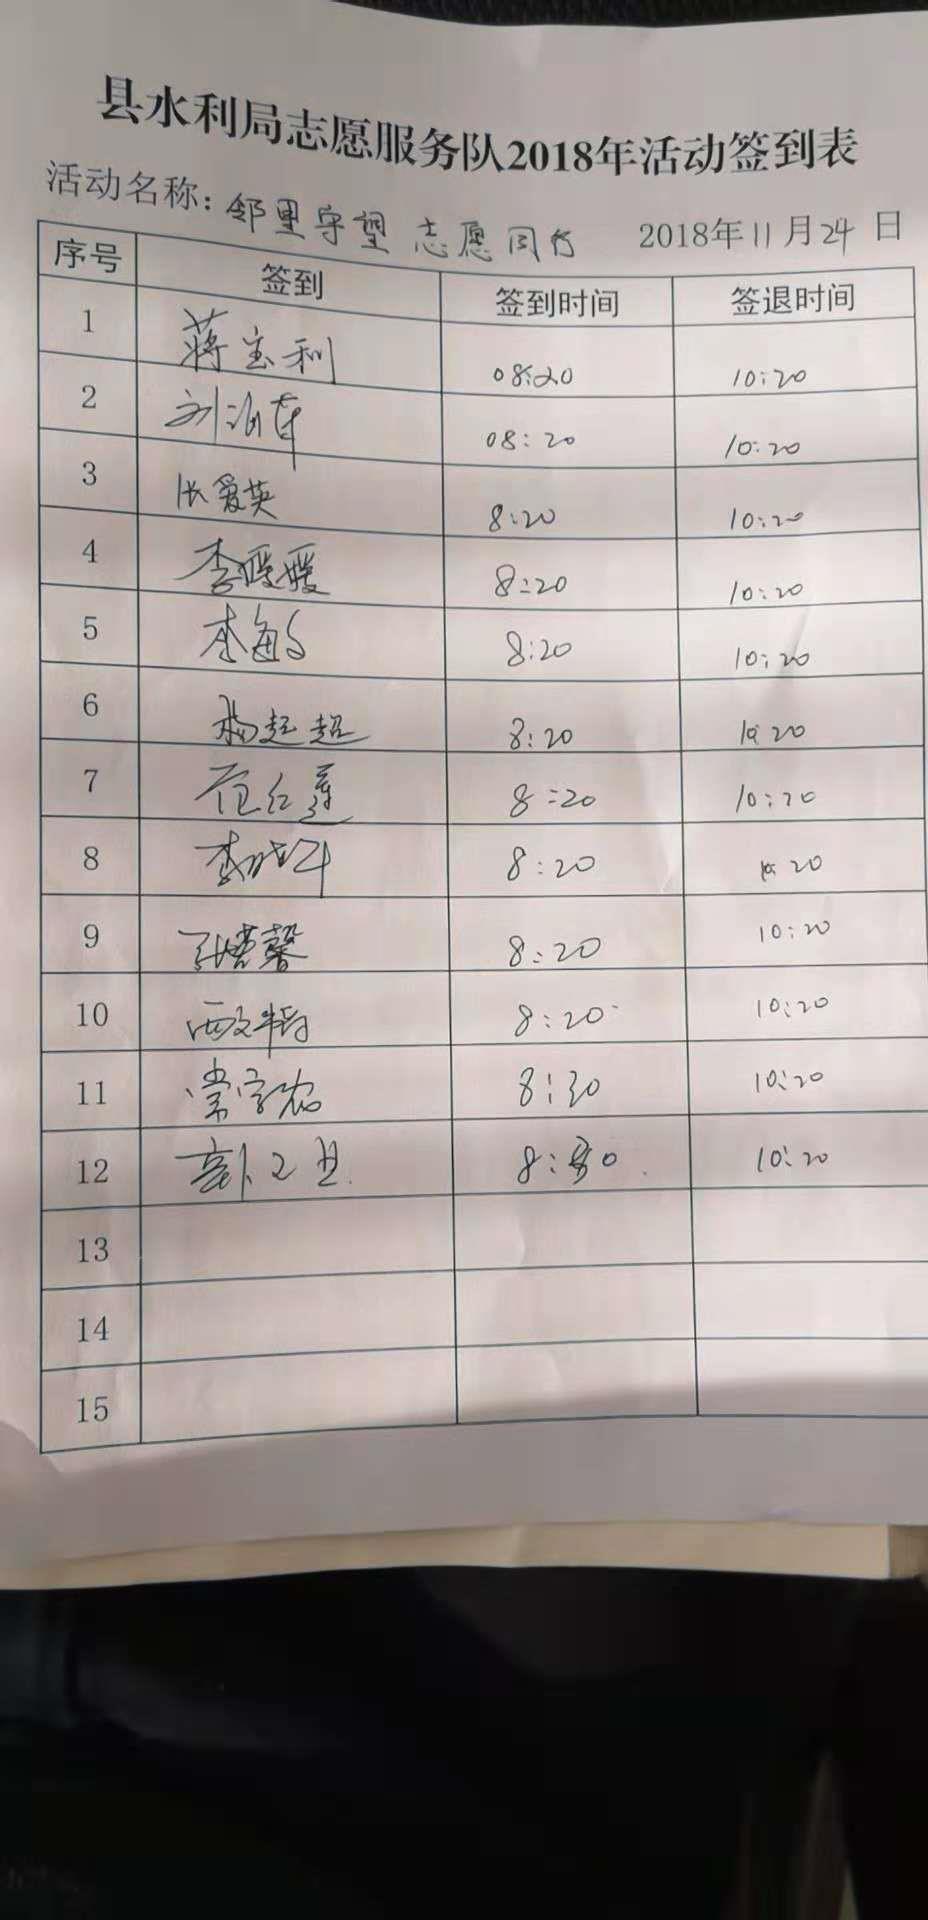 县水利局志愿服务队2018年活动签到表
活动名称: 邻里守望 志愿同行 2018年11月24日
序号 签到 签到时间 签退时间
1 蒋宝利 08:20 10:20
2 刘 08:20 10:20
3 张爱英 8:20 10:20
4 李媛媛 8:20 10:20
5 李敏 8:20 10:20
6 杨超超 8:20 10:20
7 范红莲 8:20 10:20
8 李晓 8:20 10:20
9 馨 8:20 10:20
10 8:20 10:20
11 常 8:30 10:20
12 8:30 10:20
13
14
15